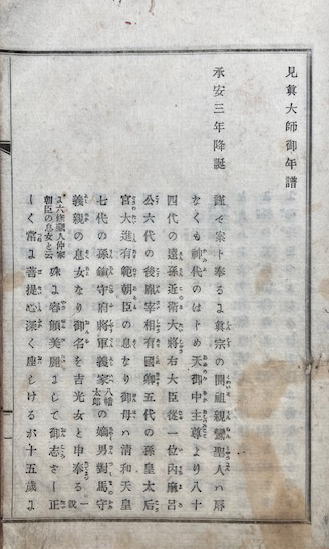 見真大師御年譜
承安三年降誕
謹で案ト奉るよ真宗の開祖親鸞聖人ハ辱
なくも神代のはトめ天御中主尊より八十
四代の遠孫近衛大将右大臣従一位内麿呂
公六代の後胤宰相有國卿五代の孫皇太后
宮大進有範朝臣の息なり御母ハ清和天皇
七代の孫鎮守府将軍義家八幡太郎の嫡男對馬守
義親の息女なり御名を吉光女と申奉る一説
よ六條蔵人仲家朝臣の息女と云殊よ容顔美麗よして御志さし正
しく常よ菩提心深く座しけるが十五歳よ